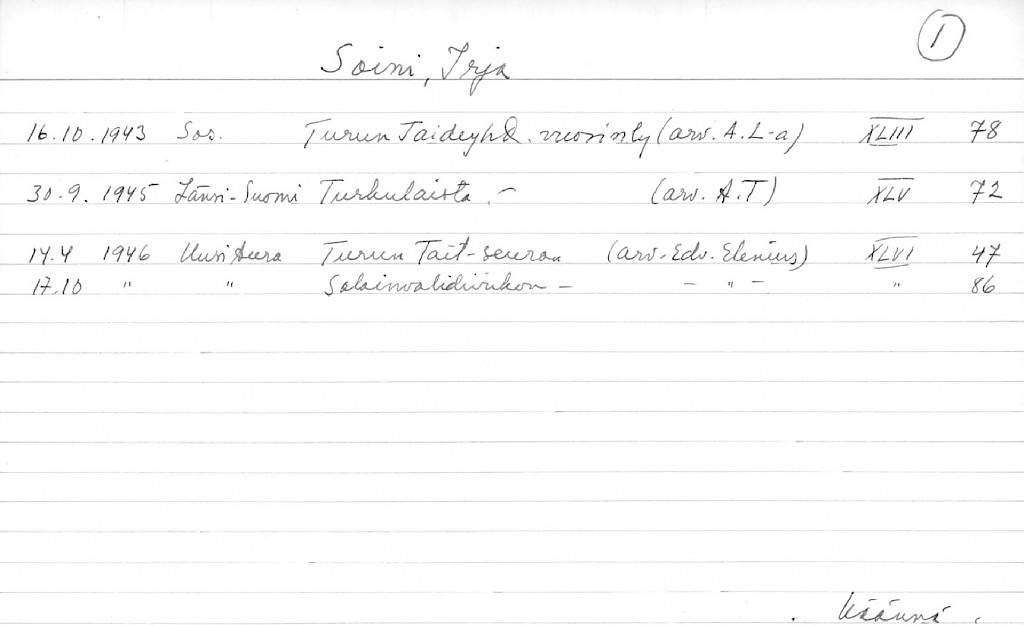 1
Soini, Irja
16.10.1943 Sos. Turun Taideyhd. vuosinly (arv. A.L-a) XLIII 78
30.9. 1945 Länsi-Suomi Turkulaista - (arv. A.T) XLV 72
14.4 1946 Uusi Aura Turun Tait-seuran (arv. Edv. Elenius) XLVI 47
17.10 " " - - " - " 86
. Käännä .